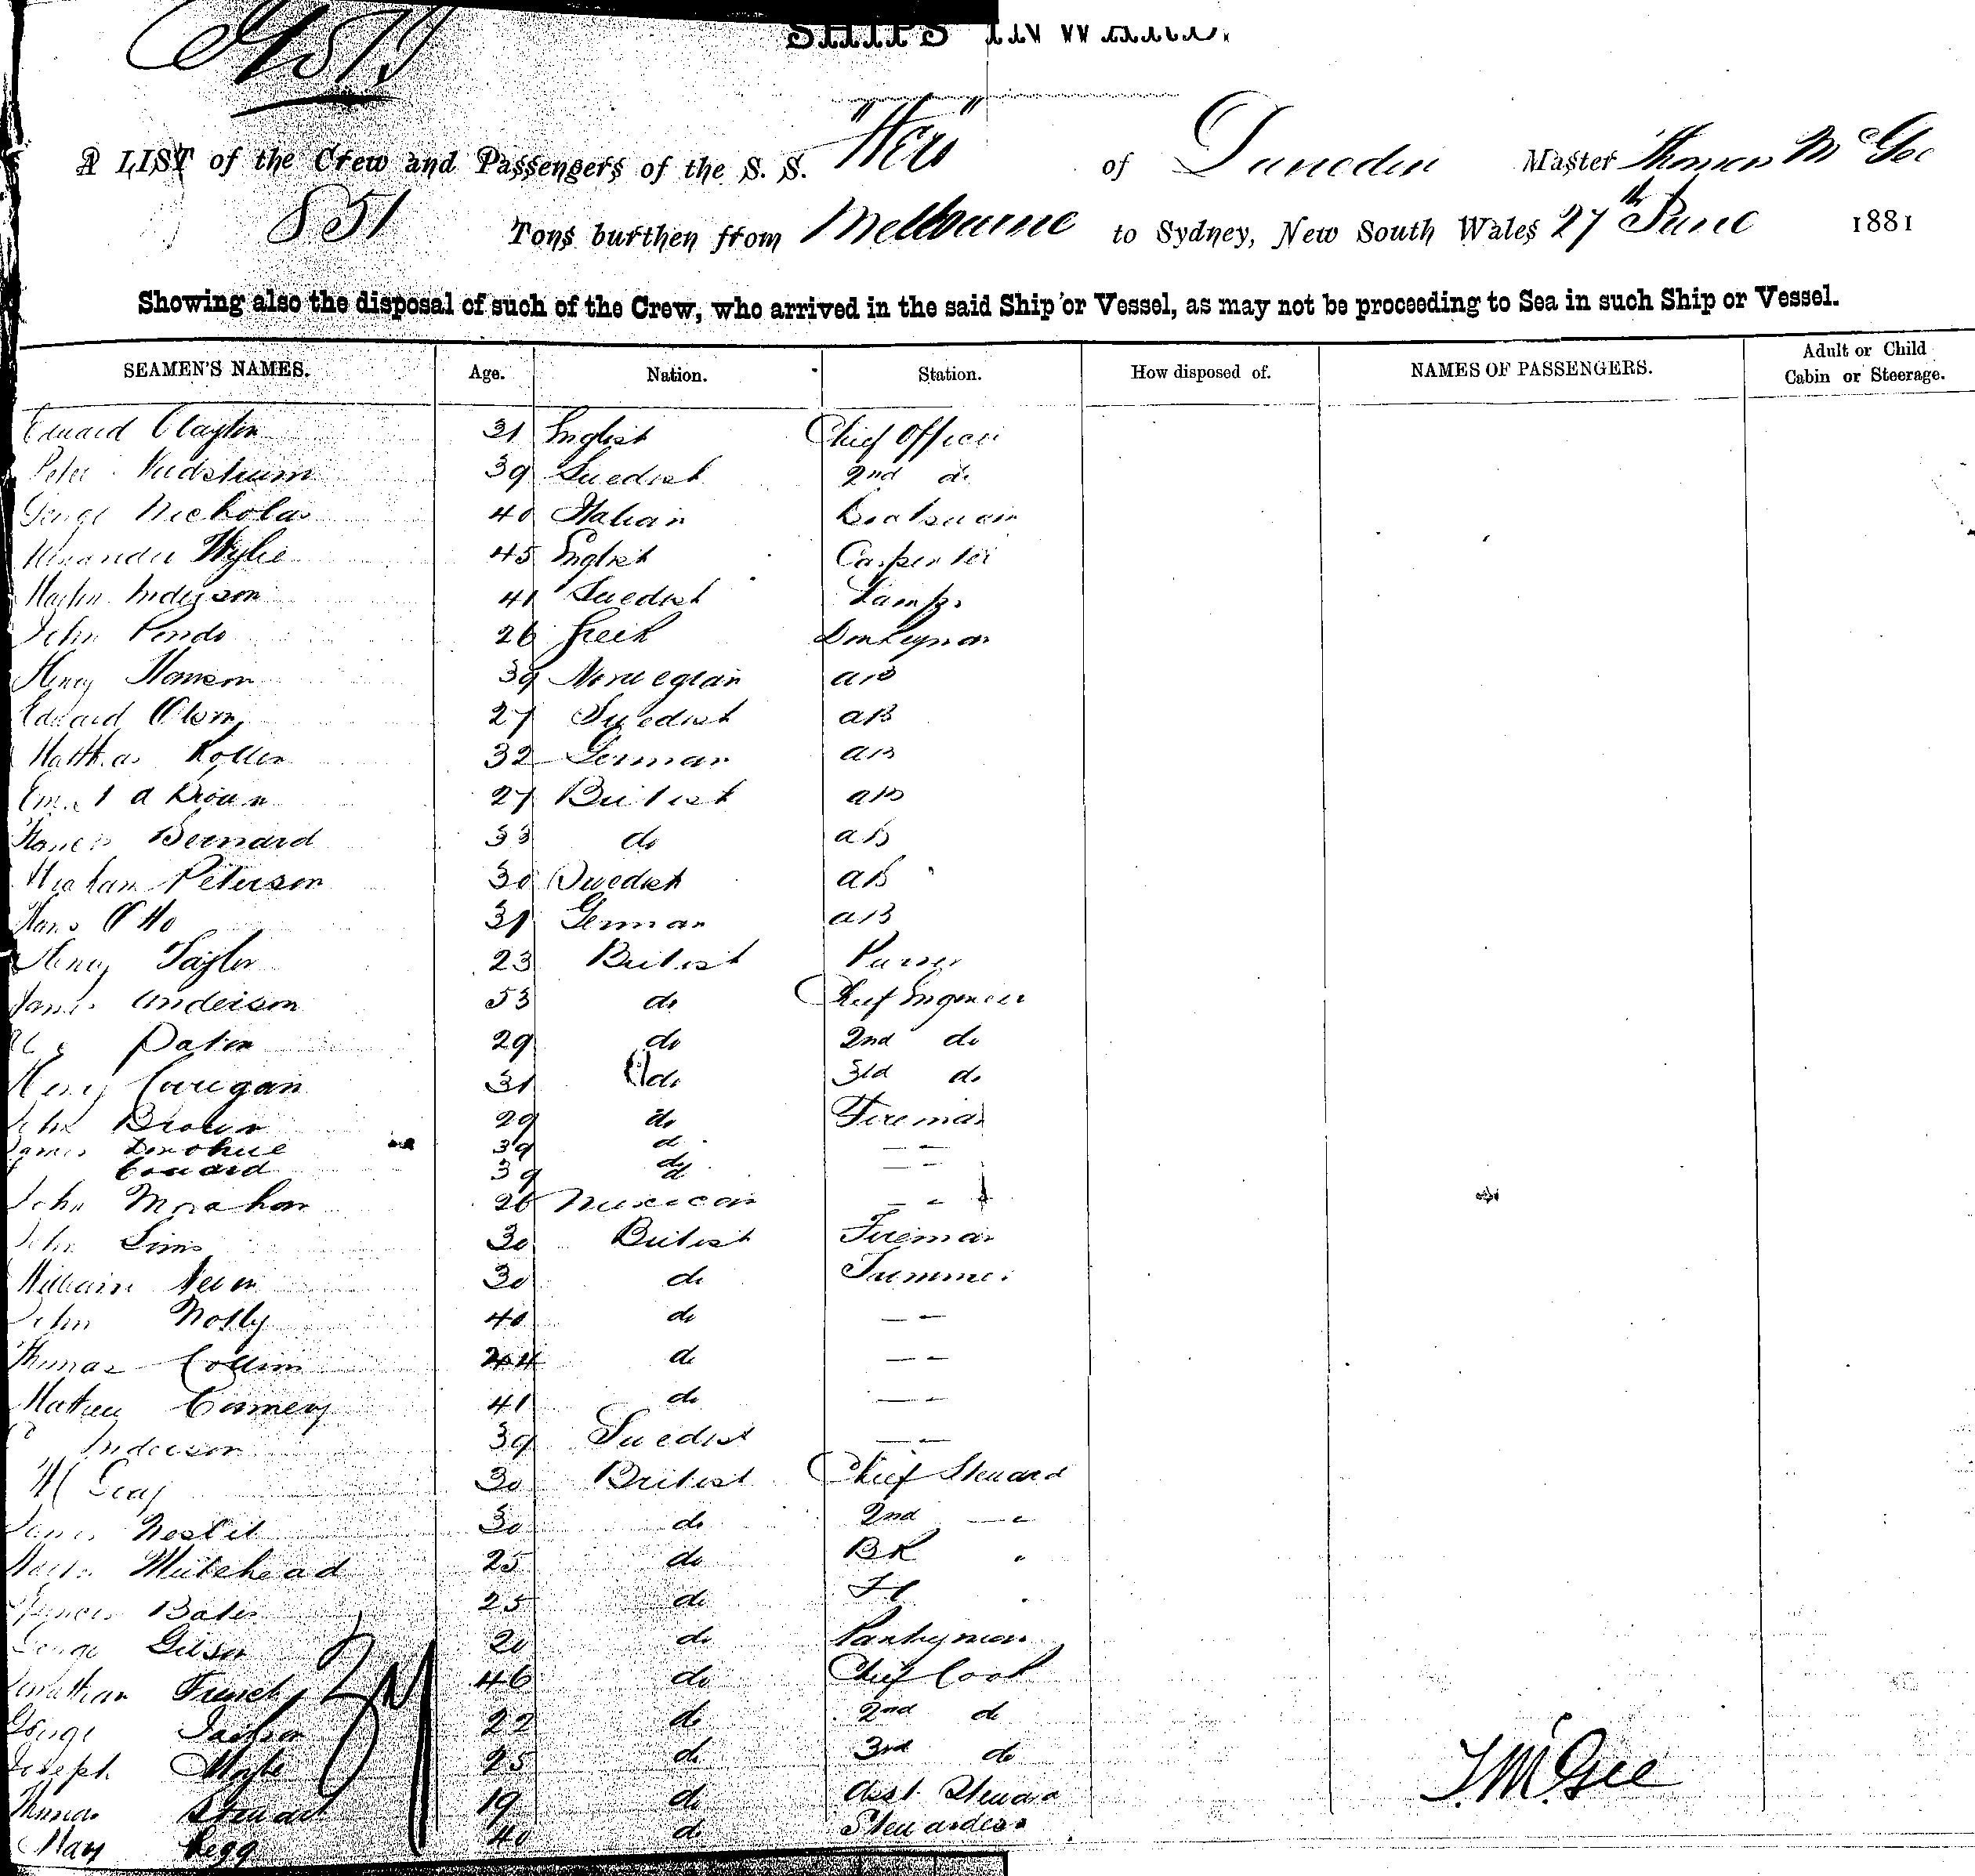 SHIPS INWARD.
A LIST of the Crew and Passengers of the S. S. "Hero" of Dunedin Master Thomas McGee
851 Tons burthen from Melbourne to Sydney, New South Wales 27th June 1881
Showing also the disposal of such of the Crew, who arrived in the said Ship or Vessel, as may not be proceeding to Sea in such Ship or Vessel.
SEAMEN'S NAMES. Age. Nation. Station. How disposed of. NAMES OF PASSENGERS. Adult or Child Cabin or Steerage.
Edward Clayton 31 English Chief Officer
Peter 39 Swedish 2nd do
George Nicholas 40 Italian Boatswain
Alexander Wylie 45 English Carpenter
Martin Anderson 41 Swedish Lamps
John Pendo 26 Greek Donkeyman
Henry Hanson 39 Norwegian AB
Edward Olsen 27 Swedish AB
Matthias 32 German AB
A Brown 27 British AB
Francis Bernard 33 do AB
Peterson 30 Swedish AB
Hans Otto 31 German AB
Henry Taylor 23 British Purser
James Anderson 53 do Chief Engineer
Paton 29 do 2nd do
Henry Corrigan 31 do 3rd do
John Brown 29 do Fireman
James Donohue 39 do — —
39 do — —
John Monahan 26 Mexican — —
John Sims 30 British Fireman
William 30 do Trimmer
John 40 do — —
Thomas Collins 44 do — —
Mathew 41 do — —
Anderson 39 Swedish — —
W Gray 30 British Chief Steward
James Nesbit 30 do 2nd — "
Muirhead 25 do BK "
Francis Bates 25 do "
George Gibson 20 do Pantryman
Jonathan French 46 do Chief Cook
George Jackson 22 do 2nd do
Joseph 25 do 3rd do
Thomas Stewart 19 do Asst. Steward
Mary Kegg 40 do Stewardess
T. McGee